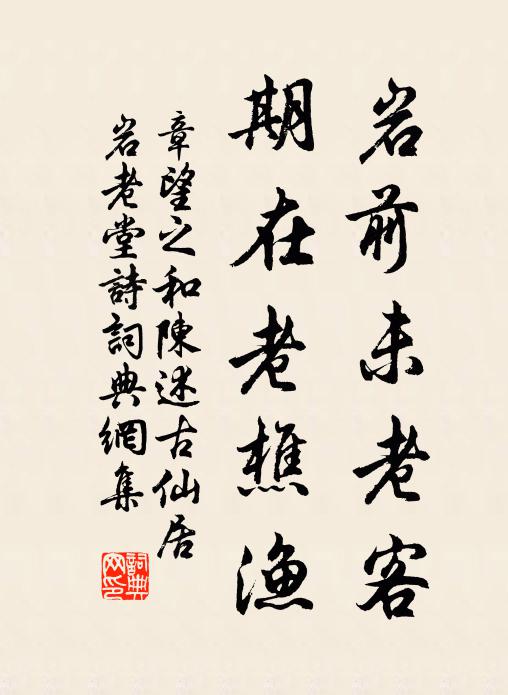 岩前未老客
期在老樵漁
章望之和陳述古仙居
岩老堂詩詞典網集
詞典网印